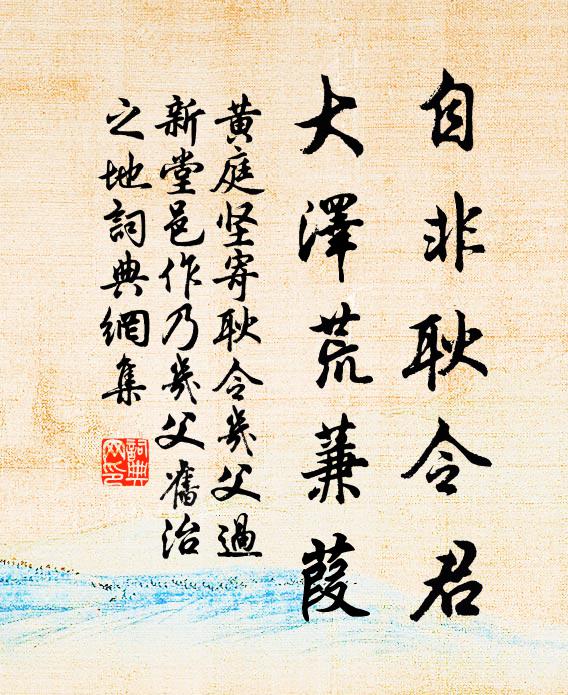 自非耿令君
大澤荒蒹葭
黃庭坚寄耿令幾父過
新堂邑作乃幾父舊治
之地詞典網集
詞典
网印